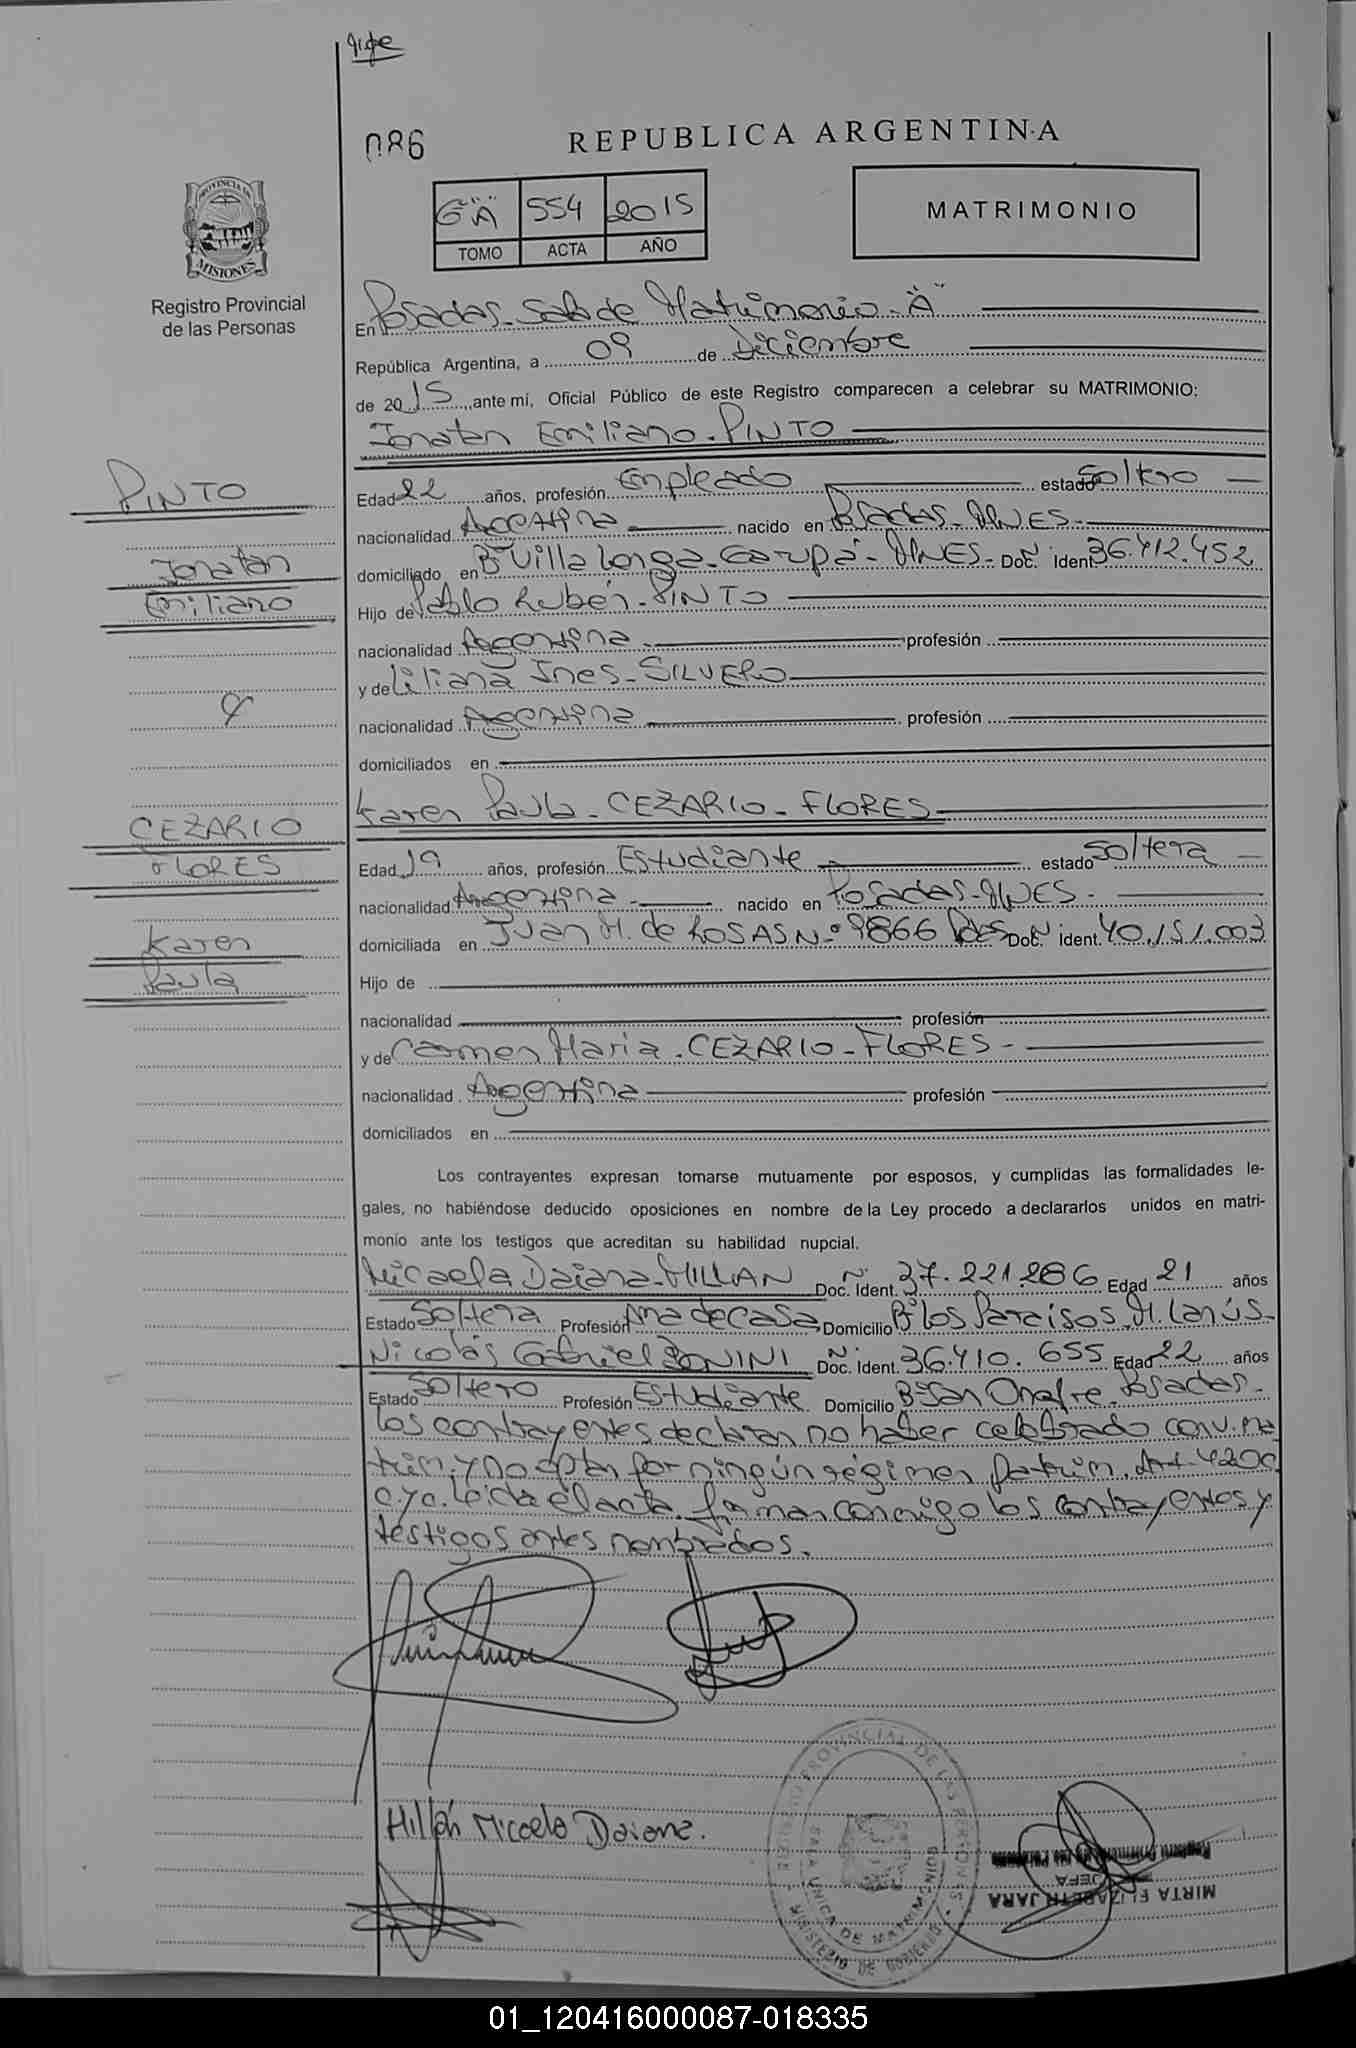 086
REPUBLICA ARGENTINA
6 "A" 554 2015
TOMO ACTA AÑO
MATRIMONIO
PROVINCIA DE
MISIONES
Registro Provincial
de las Personas
En Posadas - Sala de Matrimonio - "A"
República Argentina, a 09 de Diciembre
de 2015, ante mí, Oficial Público de este Registro comparecen a celebrar su MATRIMONIO:
Jonatan Emiliano - PINTO
PINTO
Jonatan
Emiliano
Edad 22 años, profesión Empleado estado Soltero
nacionalidad Argentina nacido en Posadas - MNES -
domiciliado en Bº Villa Longa - Garupá - MNES - Doc. Nº Ident. 36.412.452
Hijo de Pablo Rubén - PINTO
nacionalidad Argentina profesión
y de Liliana Ines - SILVERO
nacionalidad Argentina profesión
domiciliados en
Karen Paula - CEZARIO - FLORES
CEZARIO
FLORES
Karen
Paula
Edad 19 años, profesión Estudiante estado Soltera
nacionalidad Argentina nacido en Posadas - MNES -
domiciliada en Juan M. de ROSAS N.º 9866 Pdas Doc. Nº ident. 40.151.003
Hijo de
nacionalidad profesión
y de Carmen Maria - CEZARIO - FLORES -
nacionalidad Argentina profesión
domiciliados en
Los contrayentes expresan tomarse mutuamente por esposos, y cumplidas las formalidades le-
gales, no habiéndose deducido oposiciones en nombre de la Ley procedo a declararlos unidos en matri-
monio ante los testigos que acreditan su habilidad nupcial.
Micaela Daiana - MILLAN Doc. Nº Ident. 37.221.286 Edad 21 años
Estado Soltera Profesión Ama de casa Domicilio Bº Los Paraisos - M. Lanús -
Nicolás Gabriel BONINI Doc. Nº Ident. 36.410.655 Edad 22 años
Estado Soltero Profesión Estudiante Domicilio Bº San Onofre - Posadas -
Los contrayentes declaran no haber celebrado conv. ma
trim. y no optan por ningún régimen patrim. Art. 420
C.y C. Leida el acta, firman conmigo los contrayentes y
testigos antes nombrados.
Millán Micaela Daiana.
REGISTRO PROVINCIAL DE LAS PERSONAS
SALA UNICA DE MATRIMONIOS
MINISTERIO DE GOBIERNO
MIRTA ELIZABETH JARA
JEFA
01_120416000087-018335